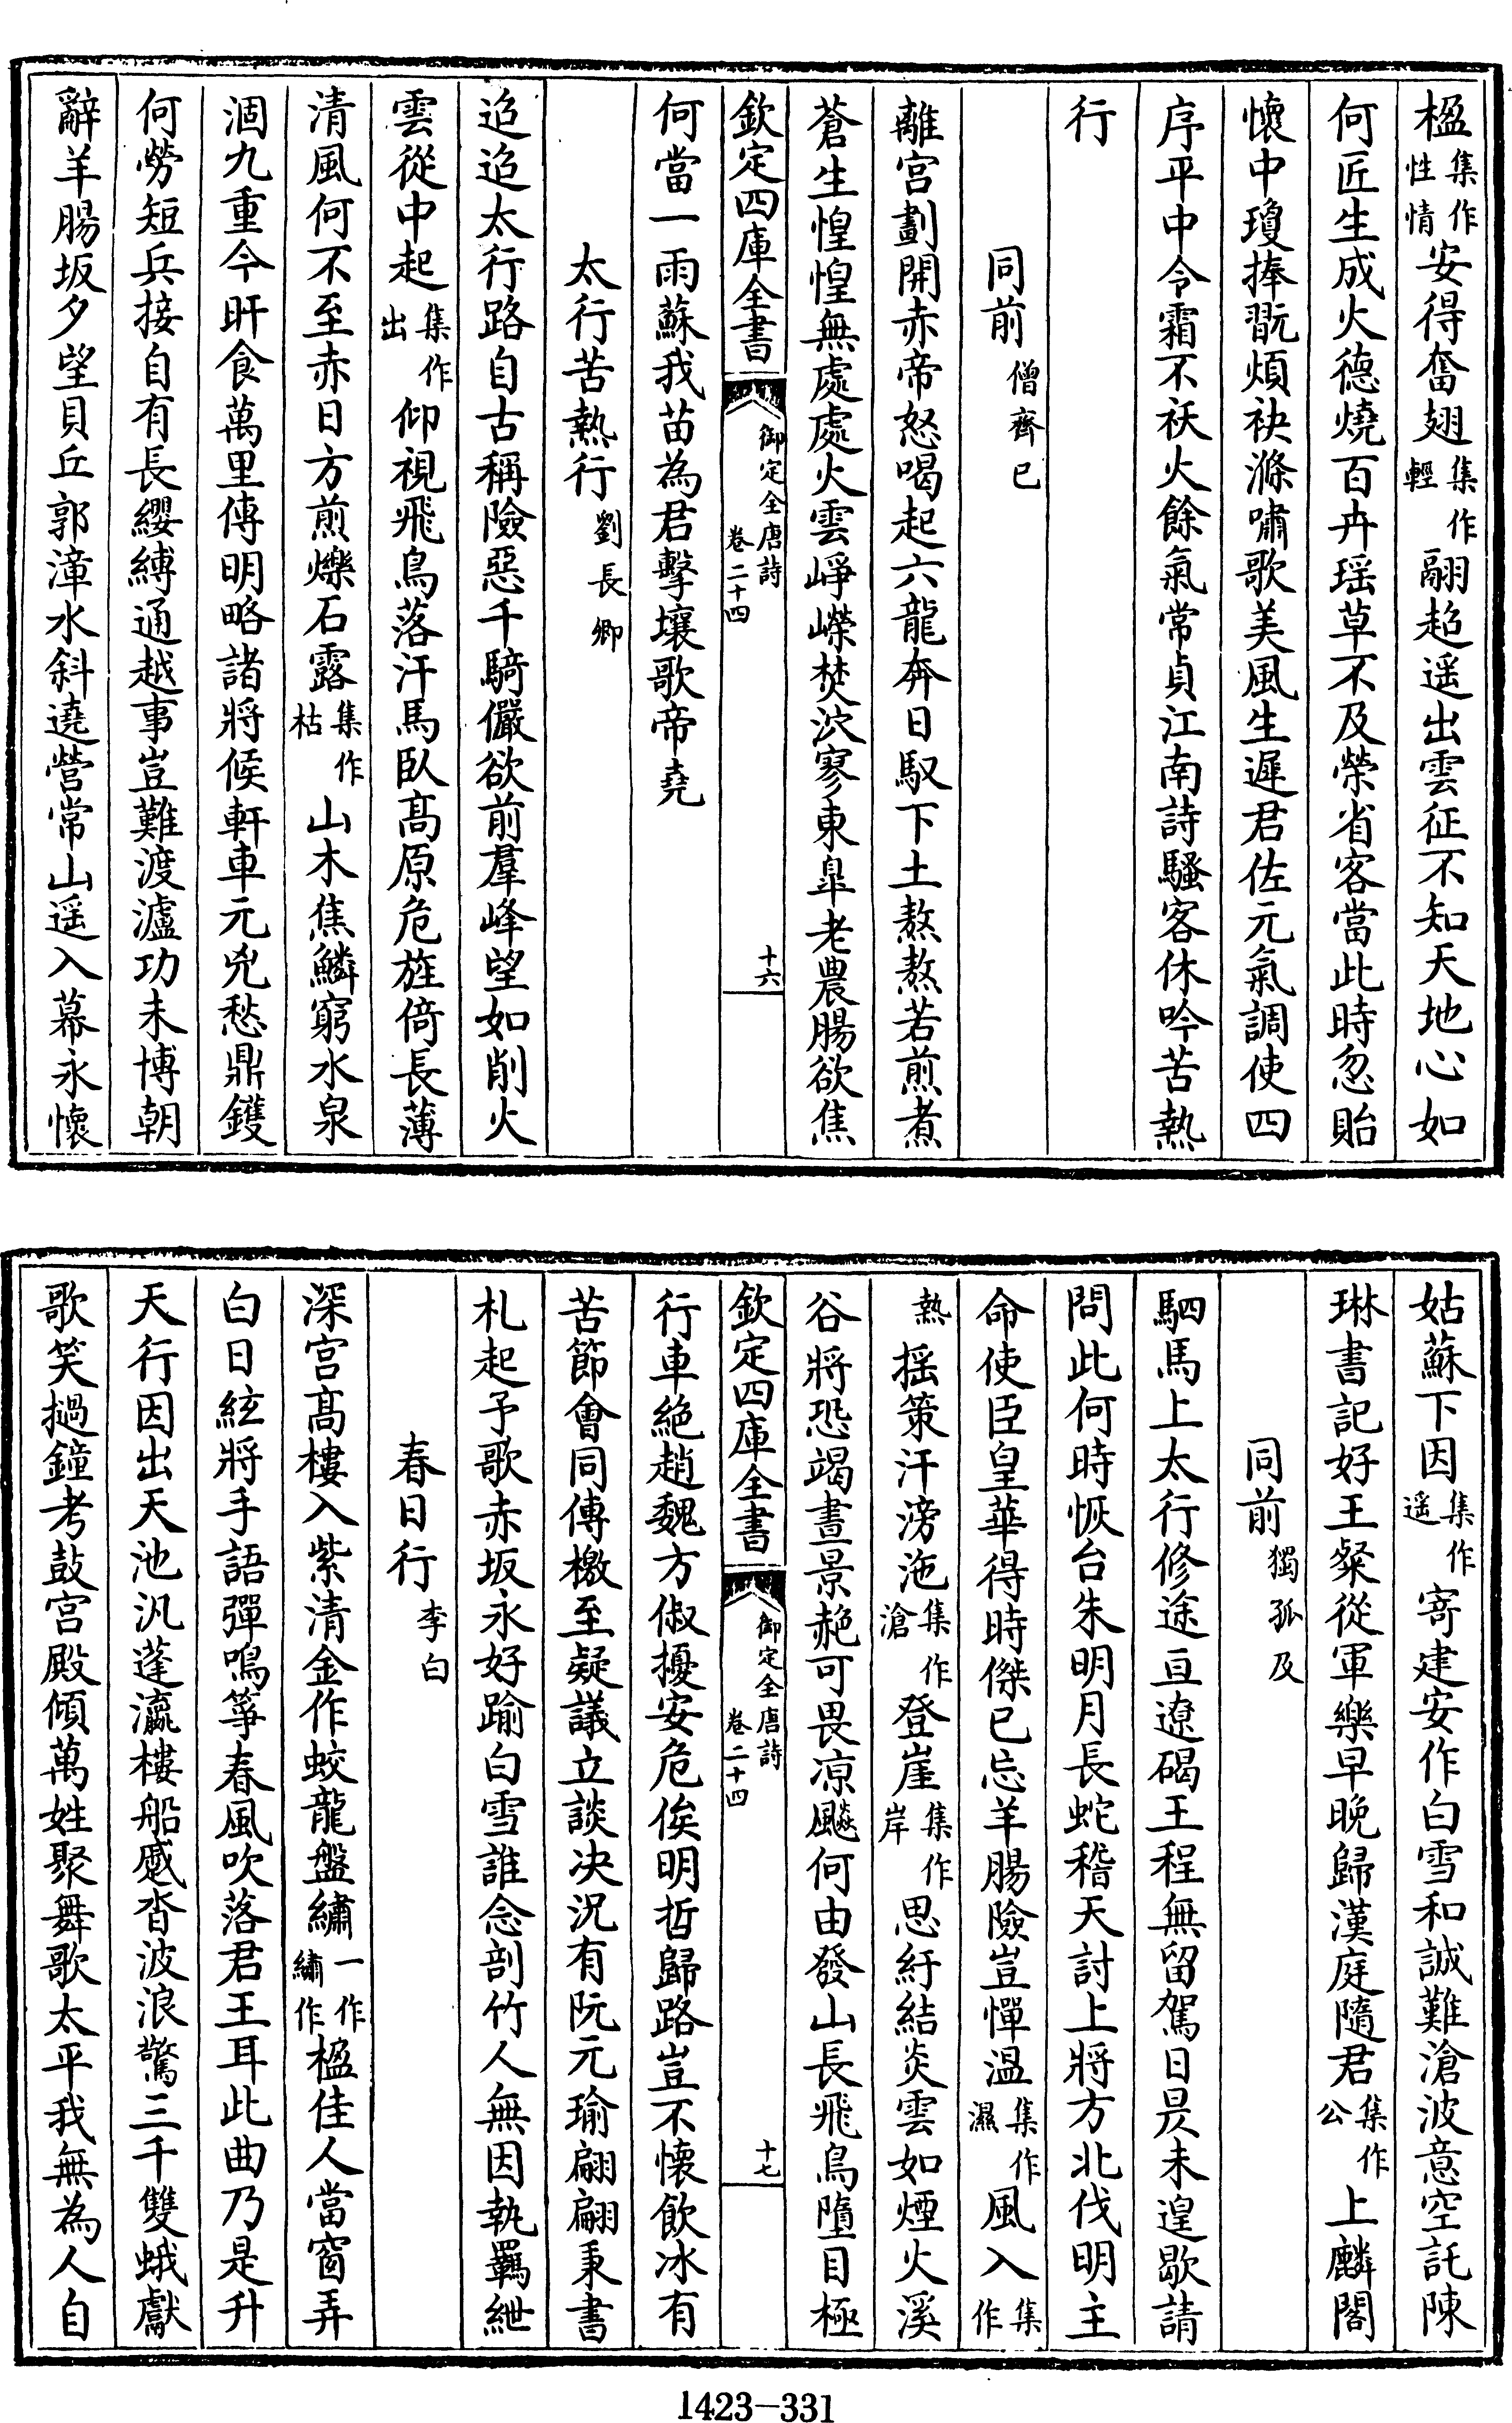 楹集作性情安得奮翅集作輕翮超遥出雲征不知天地心如
何匠生成火德燒百卉瑶草不及榮省客當此時忽貽
懷中瓊捧翫煩袂滌嘯歌美風生遲君佐元氣調使四
序平中令霜不袄火餘氣常貞江南詩騷客休吟苦熱
行
同前僧齊已
離宫劃開赤帝怒喝起六龍奔日馭下土熬熬若煎煮
蒼生惶惶無處處火雲崢嶸焚泬寥東臯老農腸欲焦
欽定四庫全書 御定全唐詩卷二十四 十六
何當一雨蘇我苗為君擊壤歌帝堯
太行苦熱行劉長卿
迢迢太行路自古稱險惡千騎儼欲前羣峰望如削火
雲從中起集作出仰視飛鳥落汗馬臥高原危旌倚長薄
清風何不至赤日方煎爍石露集作枯山木焦鱗窮水泉
涸九重今旰食萬里傳明略諸將候軒車元兇愁鼎鑊
何勞短兵接自有長纓縛通越事豈難渡瀘功未博朝
辭羊腸坂夕望貝丘郭漳水斜遶營常山遥入幕永懷
姑蘇下因集作遥寄建安作白雪和誠難滄波意空託陳
琳書記好王粲從軍樂早晚歸漢庭隨君集作公上麟閣
同前獨孤及
駟馬上太行修途亘遼碣王程無留駕日昃未遑歇請
問此何時恢台朱明月長蛇稽天討上將方北伐明主
命使臣皇華得時傑已忘羊腸險豈憚温集作濕風入集作
熱摇策汗滂沲集作滄登崖集作岸思紆結炎雲如煙火溪
谷將恐竭晝景赩可畏凉飈何由發山長飛鳥墮目極
欽定四庫全書 御定全唐詩卷二十四 十七
行車絶趙魏方俶擾安危俟明哲歸路豈不懷飲冰有
苦節會同傳檄至疑議立談决况有阮元瑜翩翩秉書
札起予歌赤坂永好踰白雪誰念剖竹人無因執羈紲
春日行李白
深宫高樓入紫清金作蛟龍盤繡一作繡作楹佳人當窗弄
白日絃將手語彈鳴箏春風吹落君王耳此曲乃是升
天行因出天池汎蓬瀛樓船慼沓波浪驚三千雙蛾獻
歌笑撾鐘考鼓宫殿傾萬姓聚舞歌太平我無為人自
1423-331